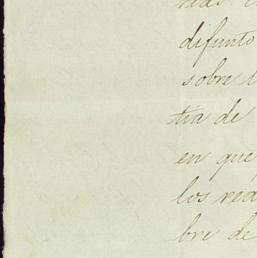 difunto
sobre
tia de
en que
los
bre de